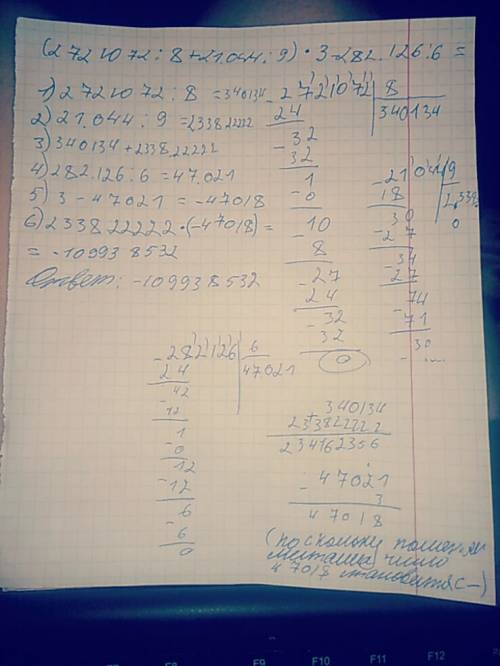 (2721072:8+21.044:9)·3-282.126:6=
1) 2721072:8=340134
2) 21.044:9=233822222
3) 340134+233822222
4) 282.126:6=47.021
5) 3-47021=-47018
6) 2338 22222·(-47018)=
=-109938532
Ответ: -109938532
2721072 8
24 340134
-32
32
1
-0
10
-8
-27
24
-32
32
0
-21044 9
18
30
-27
-34
27
-74
-71
30
-282126 6
24 47021
-42
12
1
-0
12
-12
6
-6
0
340134
+
233822222
234162356
-47021
3
47018
(поскольку
число
47018 становится с -)
F9
F10
F11
F12